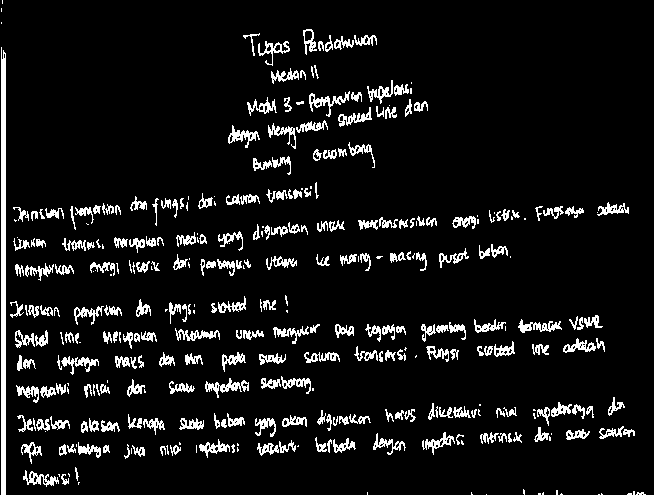 Tugas Pendahuluan
Medan II
Modul 3 - Pengukuran Impedansi
dengan Menggunakan Slotted Line dan
Bumbung Gelombang
Jelaskan pengertian dan fungsi dari saluran transmisi!
transmisi merupakan media yang digunakan untuk mentransmisikan energi listrik. Fungsinya adalah
menyalurkan energi listrik dari pembangkit utama ke masing - masing pusat beban.
Jelaskan pengertian dan fungsi slotted line!
Slotted line merupakan instrumen untuk mengukur pola tegangan gelombang berdiri termasuk VSWR
dan tegangan maks dan min pada suatu saluran transmisi. Fungsi slotted line adalah
mengetahui nilai dari suatu impedansi sembarang.
Jelaskan alasan kenapa suatu beban yang akan digunakan harus diketahui nilai impedansinya dan
apa akibatnya jika nilai impedansi tersebut berbeda dengan impedansi intrinsik dari suatu saluran
transmisi!